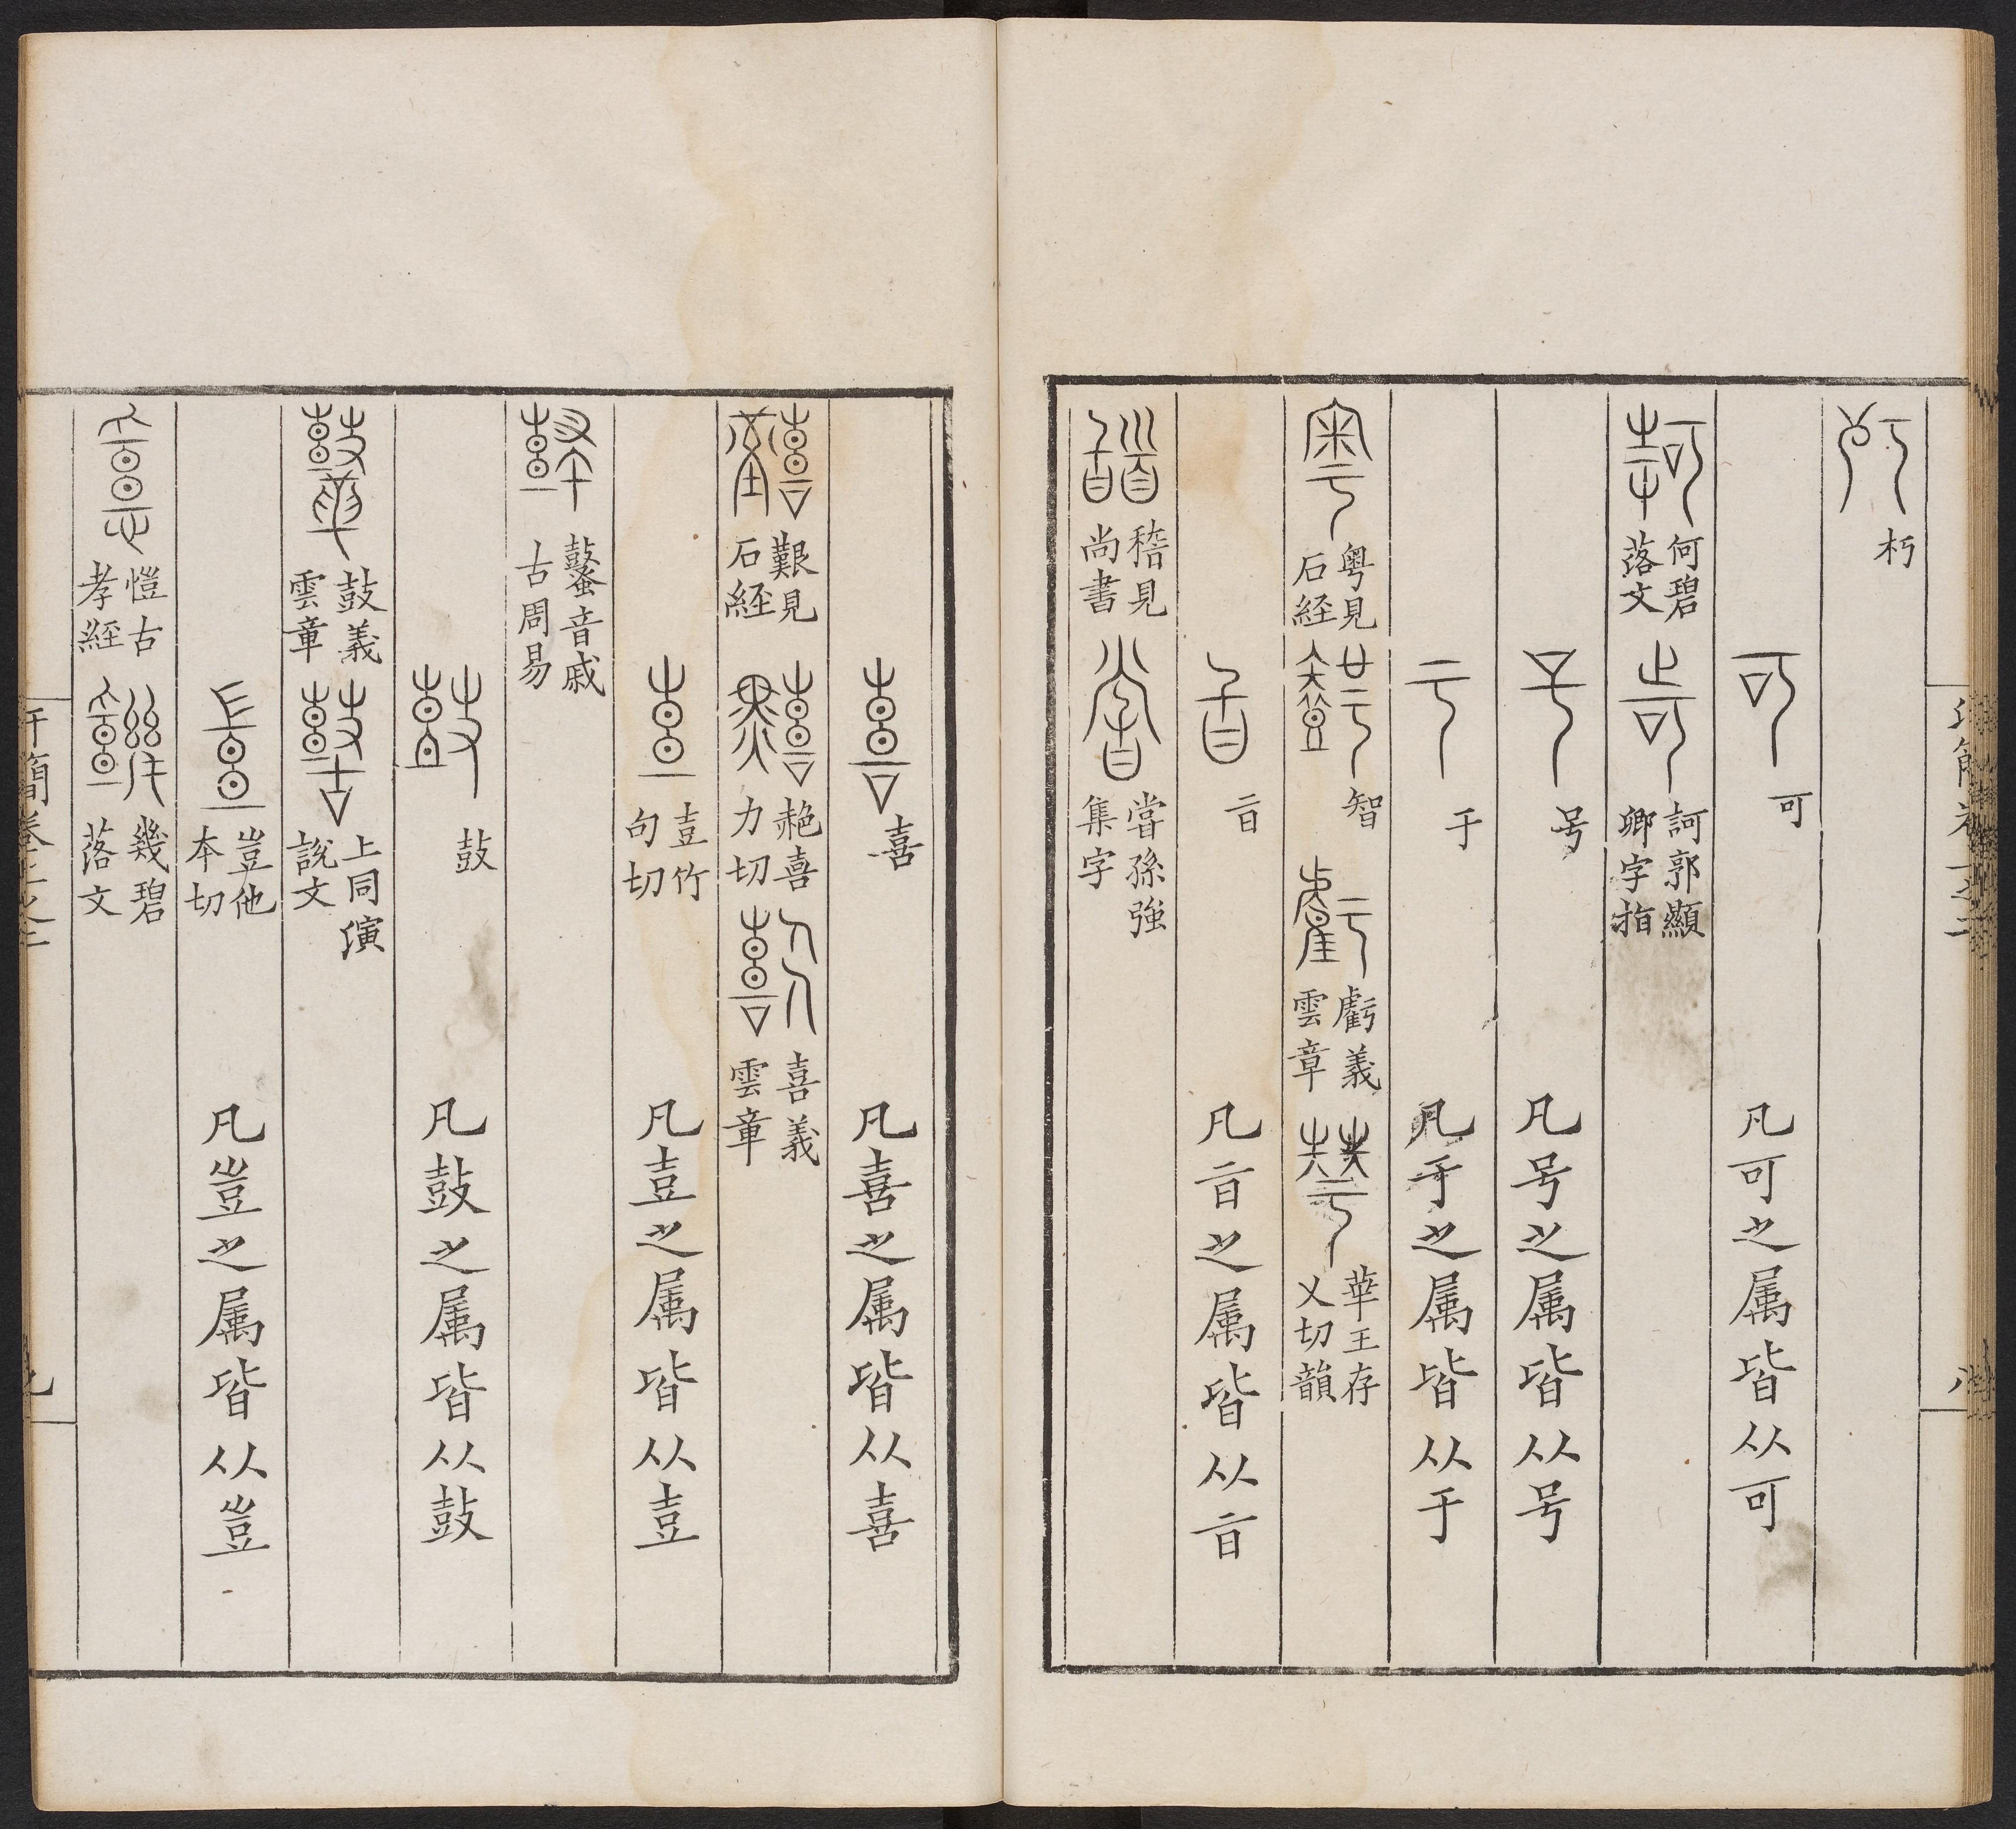 朽
可 凡可之属皆从可
何碧落文 訶郭顯卿字指
号 凡号之属皆从号
于 凡于之属皆从于
粤見石経 智 虧義雲章 華王存乂切韻
㫖 凡㫖之属皆从㫖
稽見尚書 嘗孫強集字
喜 凡喜之属皆从喜
艱見石経 赩喜力切 喜義雲章
壴竹句切 凡壴之属皆从壴
鼜音戚古周易
鼓 凡鼓之属皆从鼓
鼓義雲章 上同演說文
豈他本切 凡豈之属皆从豈
愷古孝經 幾碧落文
汗簡卷上之二
九